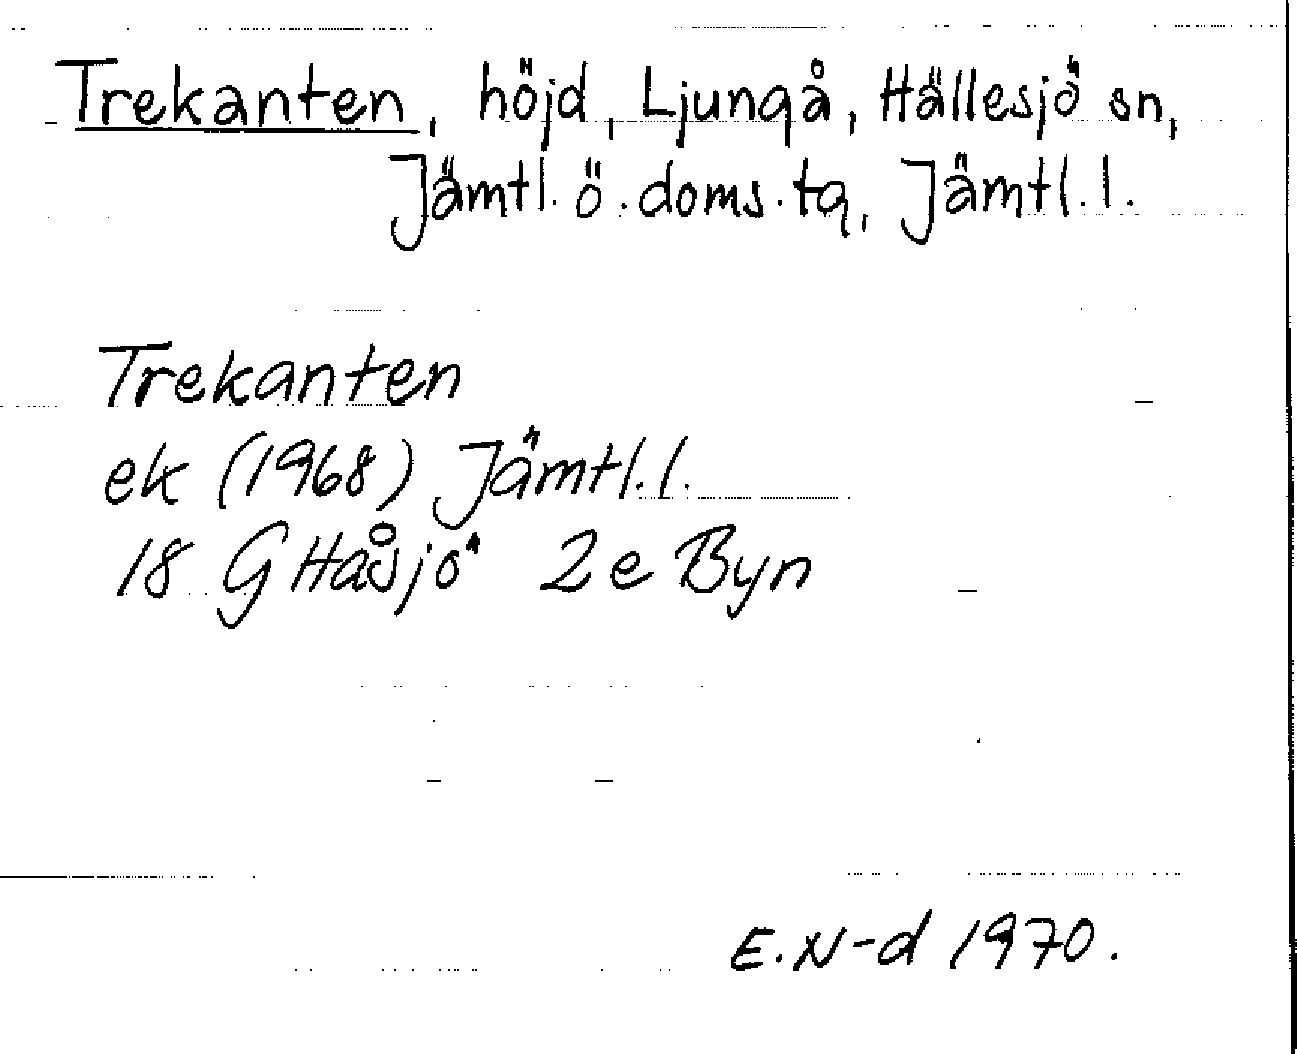 Trekanten, höjd, Ljungå, Hällesjö sn,
Jämtl. ö. doms. tg, Jämtl. l.
Trekanten
ek (1968) Jämtl. l.
18 G Håsjö 2e Byn
E. N-d 1970.